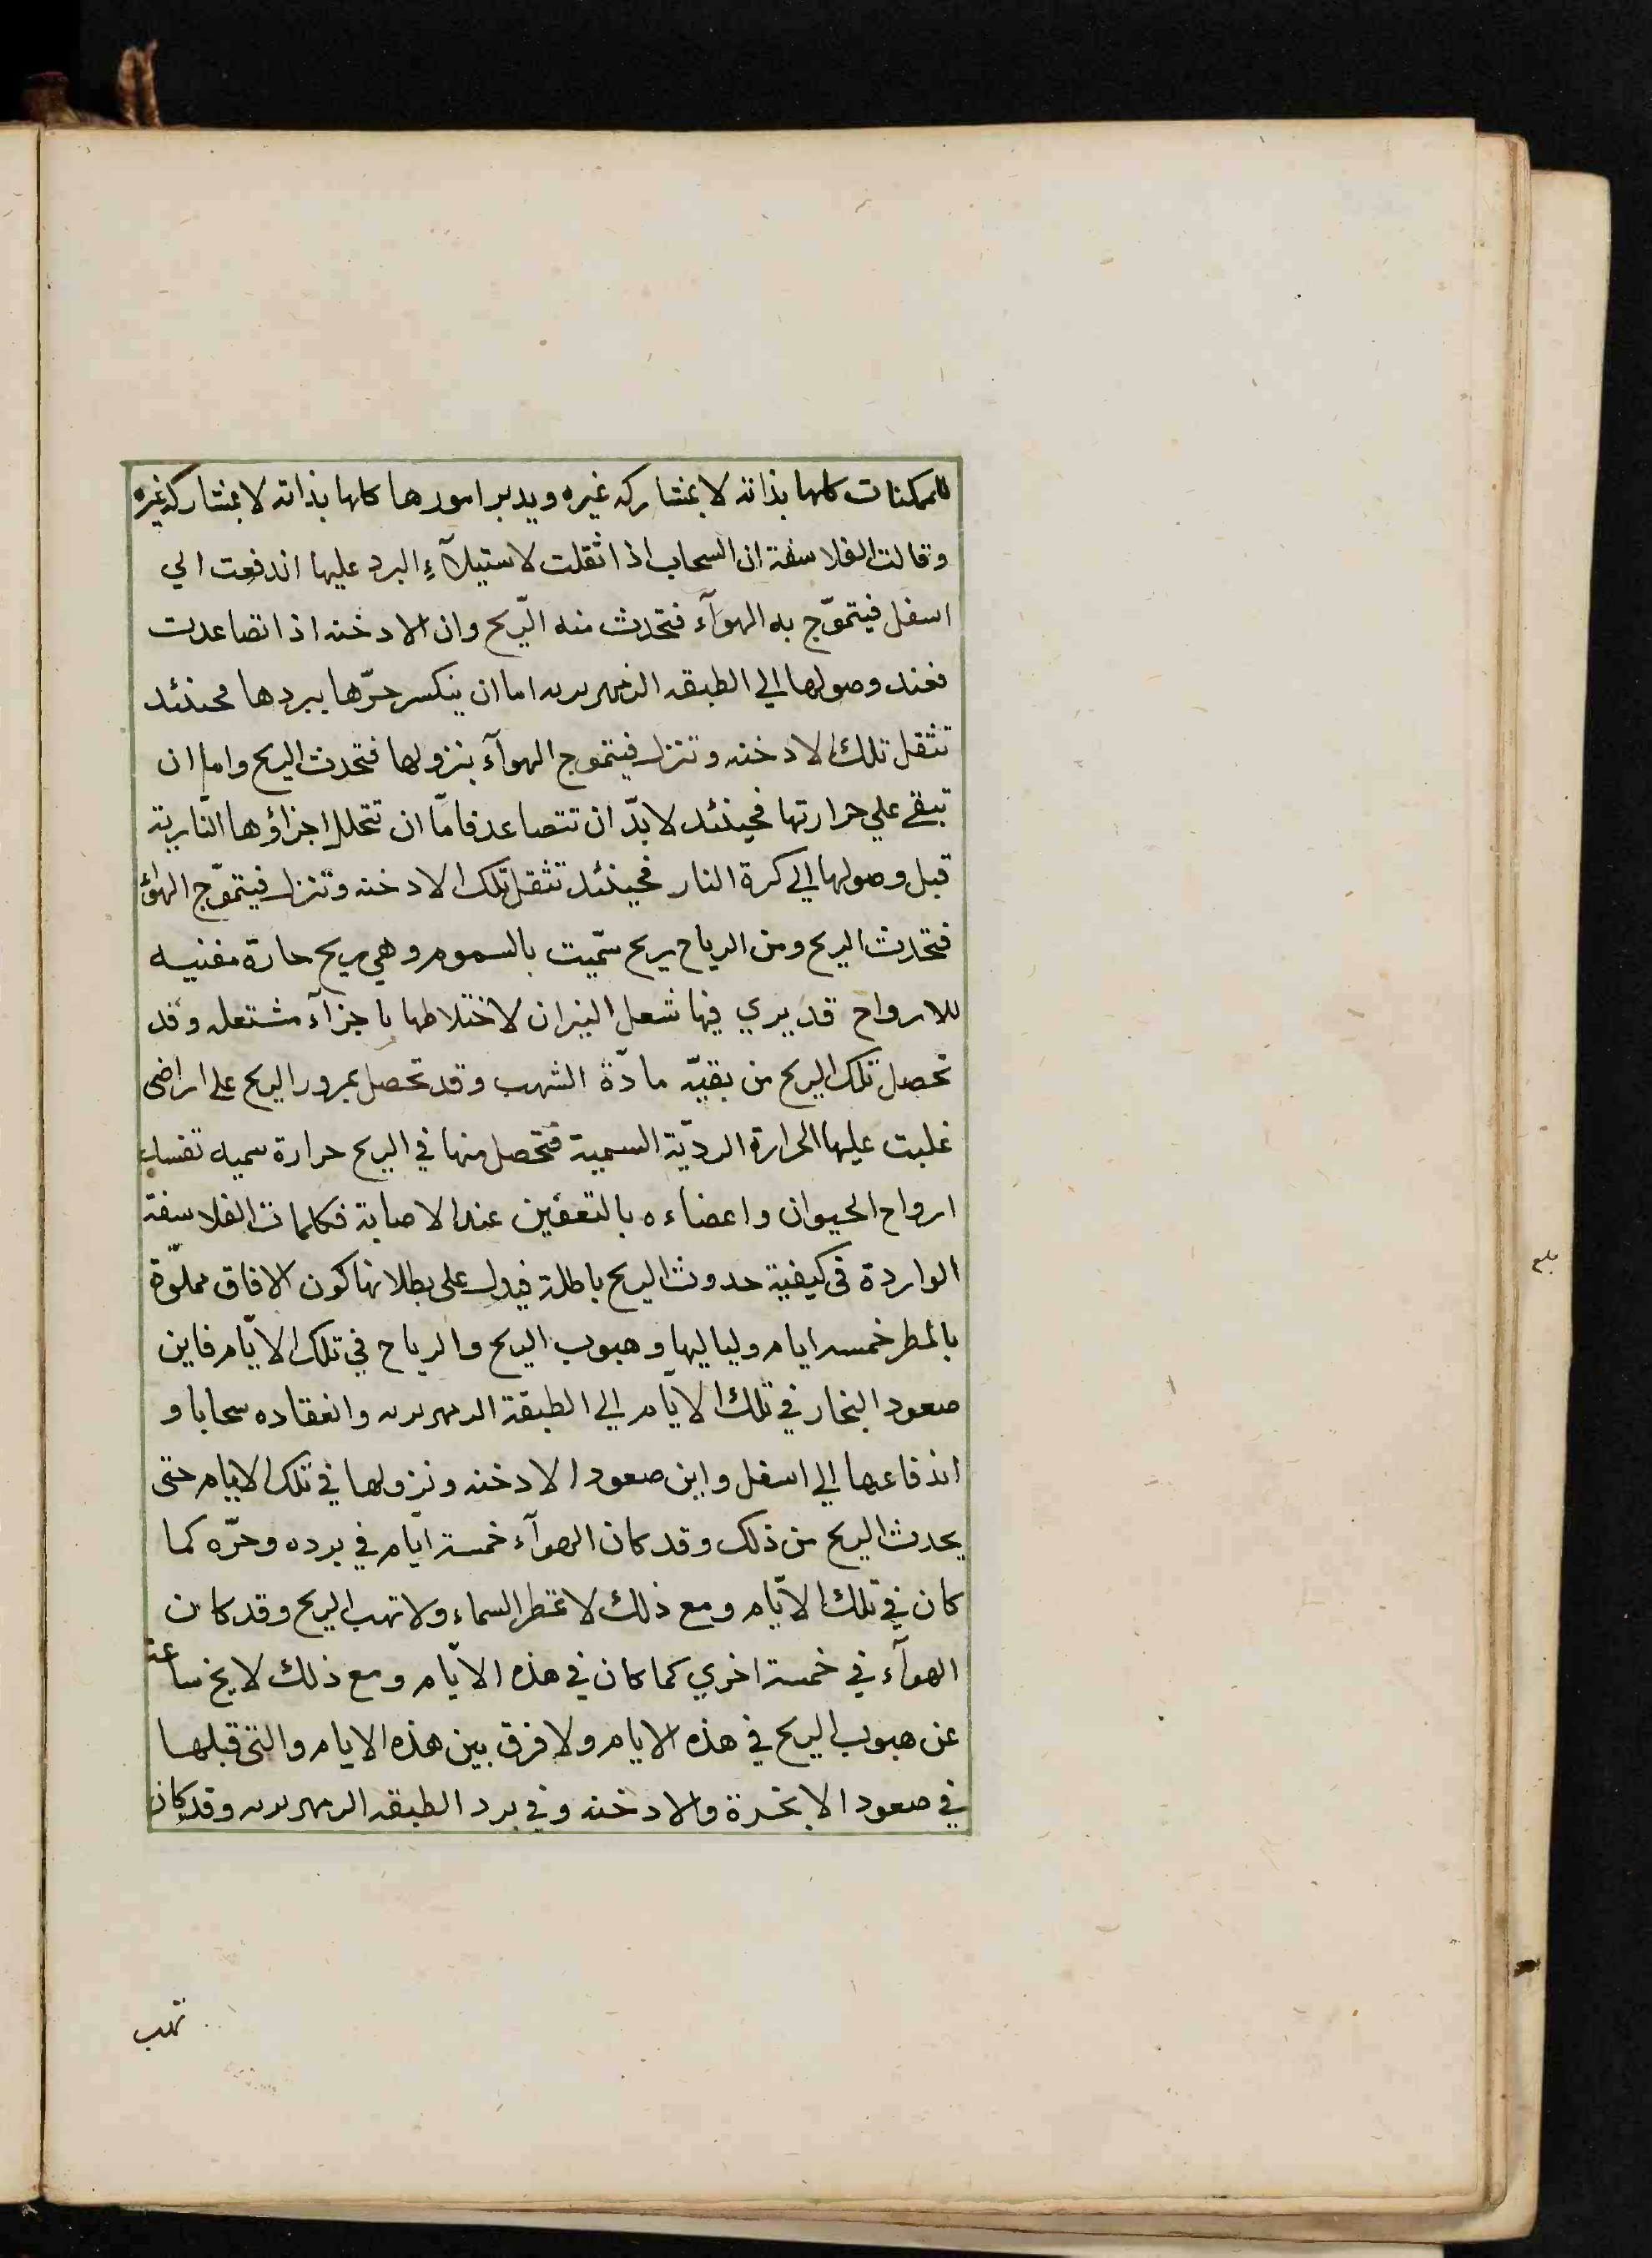 للممكنات كلها بذاته لا بمشاركة غيره ويدبر امورها كلها بذاته لا بمشاركة غيره
وقالت الفلاسفة ان السحاب اذا ثقلت لاستيلآءِ البرد عليها اندفعت الي
اسفل فيتموّج به الهوآء فتحدث منه الرّيح وان الادخنه اذا تصاعدت
فعند وصولها الي الطبقه الزمهريريه اما ان ينكسر حرّها ببردها فحينئد
تثقل تلك الادخنه وتنزل فيتموج الهوآء بنزولها فتحدث الريح واما ان
تبقي علي حرارتها فحينئد لا بدّ ان تتصاعد فامّا ان تتحلل اجزاؤها النّارية
قبل وصولها الي كرة النار فحينئد تثقل تلك الادخنه وتنزل فيتموّج الهوآء
فتحدث الريح ومن الرياح ريح سمّيت بالسموم وهي ريح حارة مفنيه
للارواح قد يري فيها شعل النيران لاختلاطها باجزآء مشتعله وقد
تحصل تلك الريح من بقيّه مادّة الشهب وقد تحصل بمرور الريح على اراضى
غلبت عليها الحرارة الرديّة السمية فتحصل منها في الريح حرارة سميه تفسد
ارواح الحيوان واعضاءه بالتعفين عند الاصابة فكلمات الفلاسفة
الواردة فى كيفية حدوث الريح باطلة فيدل على بطلانها كون الافاق مملوّة
بالمطر خمسه ايام ولياليها وهبوب الريح والرياح في تلك الايّام فاين
صعود البخار في تلك الايّام الي الطبقة الزمهريريه وانعقاده سحابا و
اندفاعها الي اسفل واين صعود الادخنه ونزولها في تلك الايام حتى
يحدث الريح من ذلك وقد كان الهوآء خمسة ايّام في برده وحرّه كما
كان في تلك الايّام ومع ذلك لا تمطر السماء ولا تهب الريح وقد كان
الهوآء في خمسة اخري كما كان في هذه الايّام ومع ذلك لا يخ ساعة
عن هبوب الريح في هذه الايام ولا فرق بين هذه الايام والتى قبلها
في صعود الابخرة والادخنه وفي برد الطبقه الزمهريريه وقد كان
تهب